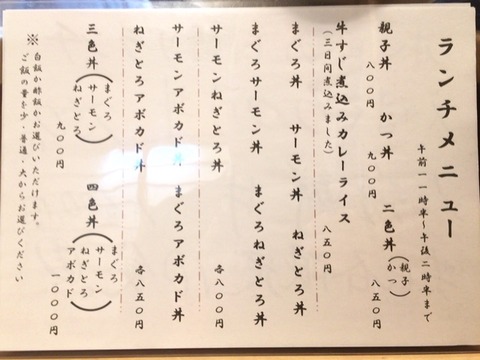 ランチメニュー
午前一一時半～午後二時半まで
親子丼 八〇〇円 かつ丼 九〇〇円 二色丼(親子 かつ) 八五〇円
牛すじ煮込みカレーライス 八五〇円
(三日間煮込みました)
まぐろ丼 サーモン丼 ねぎとろ丼
まぐろサーモン丼 まぐろねぎとろ丼
サーモンねぎとろ丼 各八〇〇円
サーモンアボカド丼 まぐろアボカド丼
ねぎとろアボカド丼 各八五〇円
三色丼(まぐろ サーモン ねぎとろ) 九〇〇円 四色丼(まぐろ サーモン ねぎとろ アボカド) 一〇〇〇円
※ 白飯か酢飯かお選びいただけます。
ご飯の量を少・普通・大からお選びください